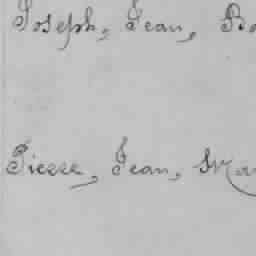 Joseph, Jean, Ba
Pierre, Jean, Ma